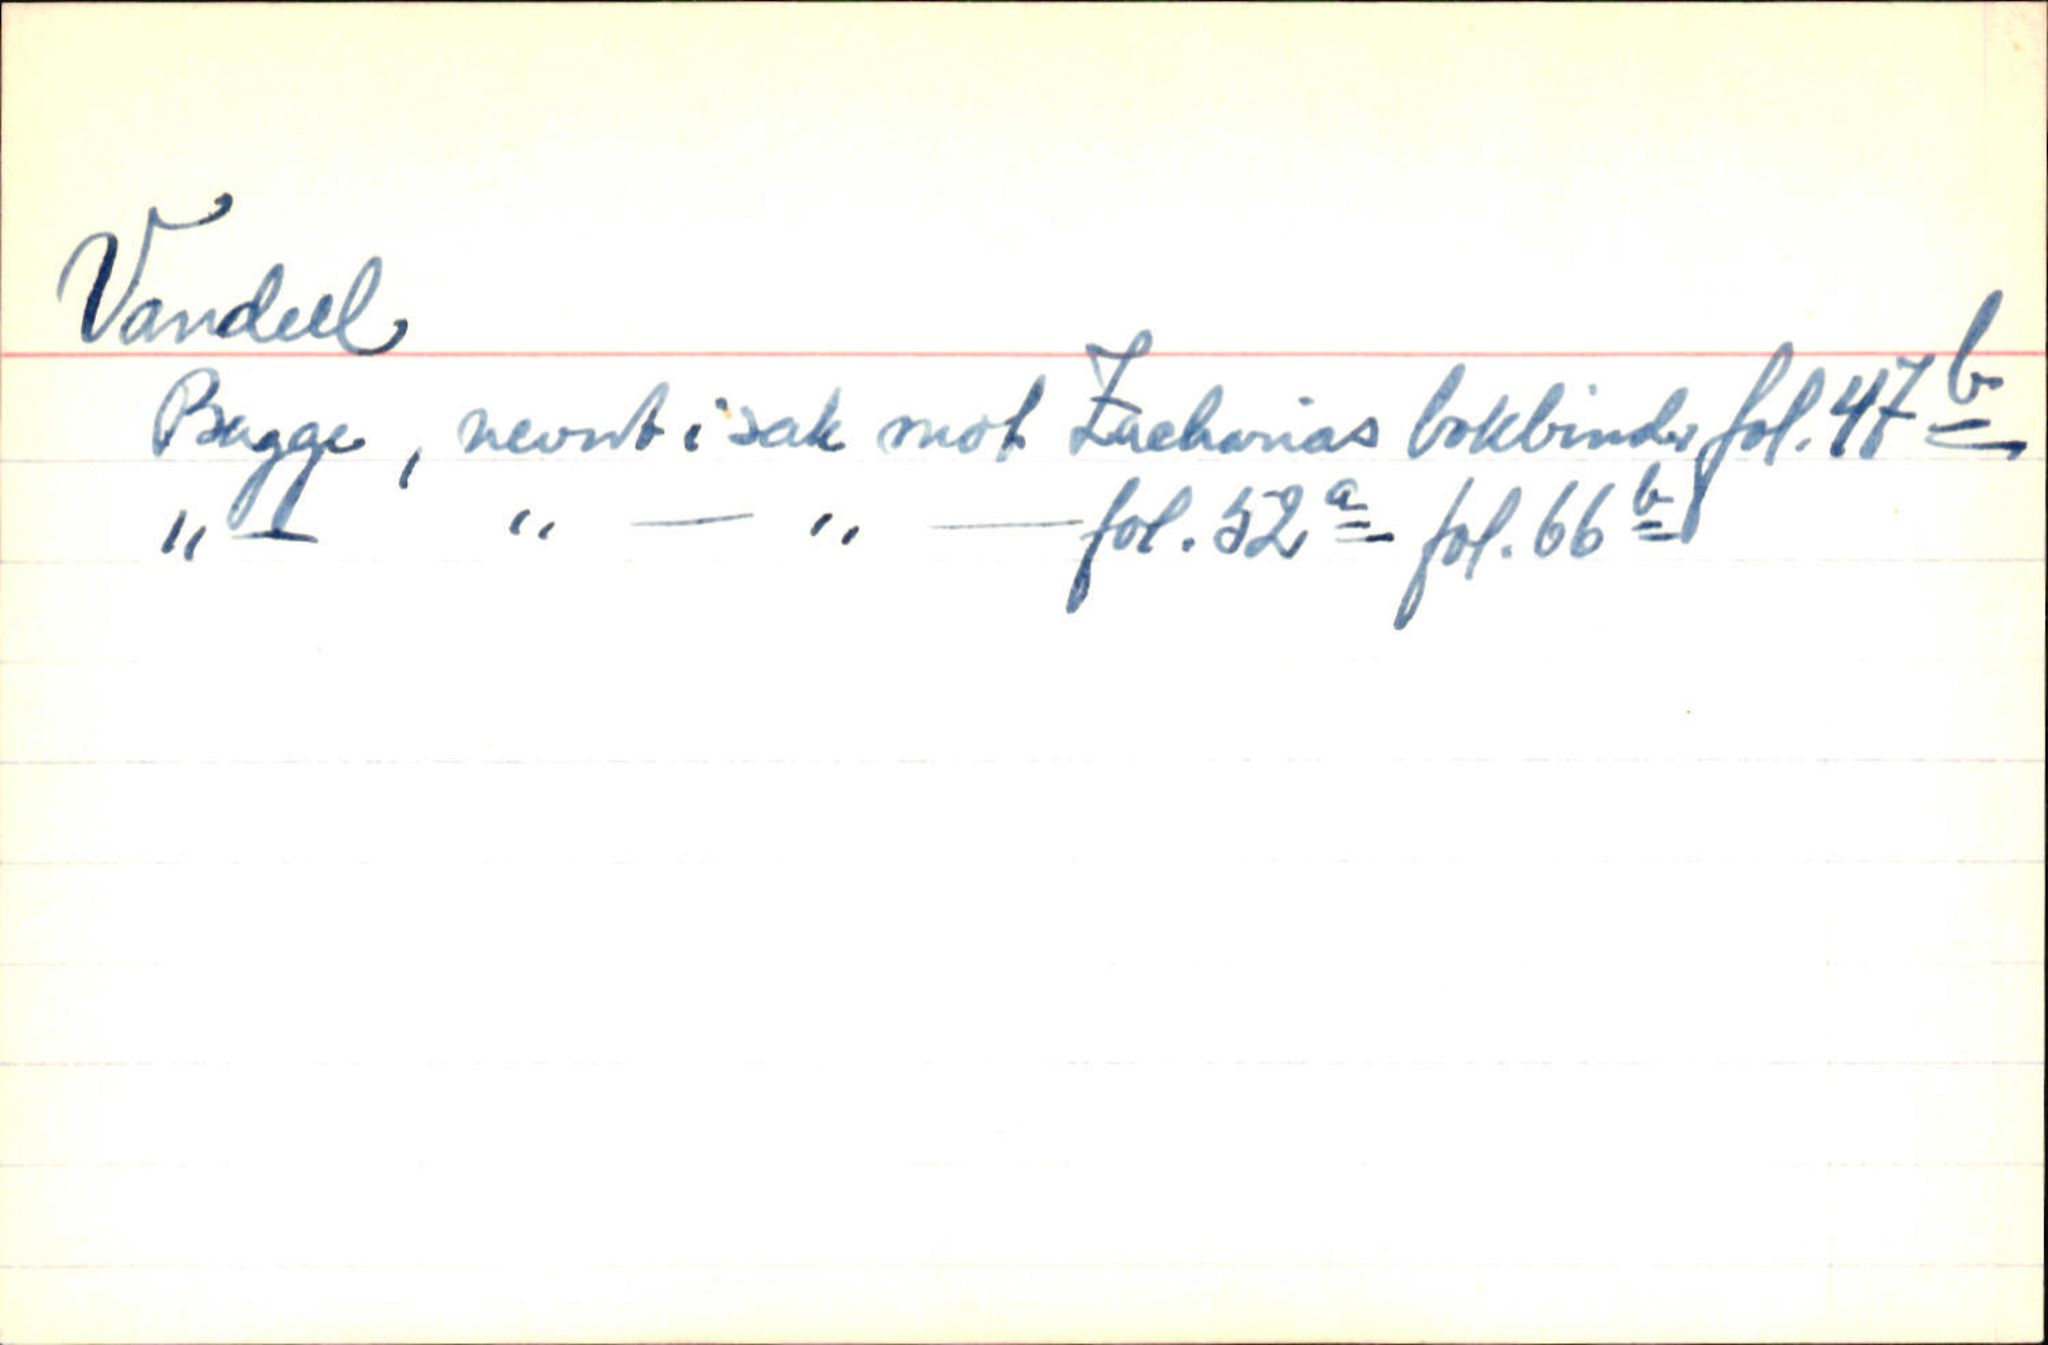 Vandeel
Bagge, nevnt i sak mot Zacharias bokbinder fol. 47 b
" — " — " — fol. 52 a fol. 66 b